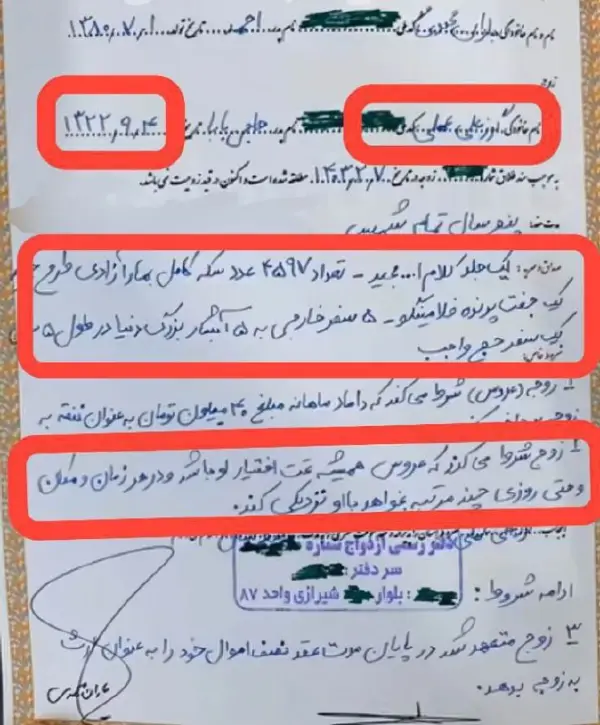 نام و نام خانوادگی: باران محمدی کد ملی نام پدر: احمد تاریخ تولد: ۱۳۸۰،۷،۱
زوج
نام خانوادگی: نوزعلی عملی کد ملی نام پدر: حاجی بابا تاریخ ۱۳۲۲،۹،۴
به موجب سند طلاق شماره زوجه در تاریخ ۱۴۰۳،۲،۷ مطلقه شده است و اکنون در قید زوجیت نمی باشد.
پنج سال تمام شمسی
یک جلد کلام ا... مجید - تعداد ۴۵۹۷ عدد سکه کامل بهار آزادی طرح
یک جفت پرنده فلامینگو - ۵ سفر خارجی به ۵ آبشار بزرگ دنیا در طول ۵
یک سفر حج واجب
۱ زوجه (عروس) شرط می کند که داماد ماهانه مبلغ ۴۰ میلیون تومان به عنوان نفقه به
زوج شرط می کند که عروس همیشه تحت اختیار او باشد و در هر زمان و مکان
و حتی روزی چند مرتبه بخواهد با او نزدیکی کند.
دفتر رسمی ازدواج شماره
سر دفتر:
بلوار شیرازی واحد ۸۷
ادامه شروط:
۳ زوج متعهد شد در پایان مدت عقد نصف اموال خود را به عنوان ارث
به زوجه بدهد.